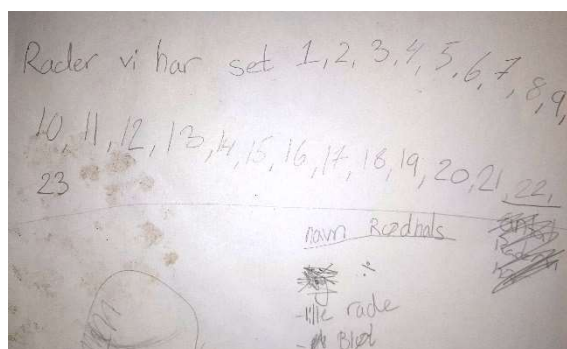 Rader vi har set 1, 2, 3, 4, 5, 6, 7, 8, 9,
10, 11, 12, 13, 14, 15, 16, 17, 18, 19, 20, 21, 22,
23
navn Rødhals
-lille rade
- Blød